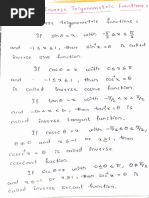 Inverse Trigonometric Functions :
Inverse trigonometric functions :
If sinθ = x with -π/2 ≤ θ ≤ π/2
and -1 ≤ x ≤ 1, then sin⁻¹x = θ is called
inverse sine function.
If cosθ = x with 0 ≤ θ ≤ π
and -1 ≤ x ≤ 1, then cos⁻¹x = θ is
called inverse cosine function.
If
then tan⁻¹x = θ is called
inverse tangent function.
If cosecθ = x with
θ ≠ 0 and x ≤ -1 or x ≥ 1, then
cosec⁻¹x = θ is called inverse
cosecant function.
If secθ = x with 0 ≤ θ ≤ π, θ ≠ π/2
and x ≤ -1 or x ≥ 1, then sec⁻¹x = θ is
called inverse secant function.